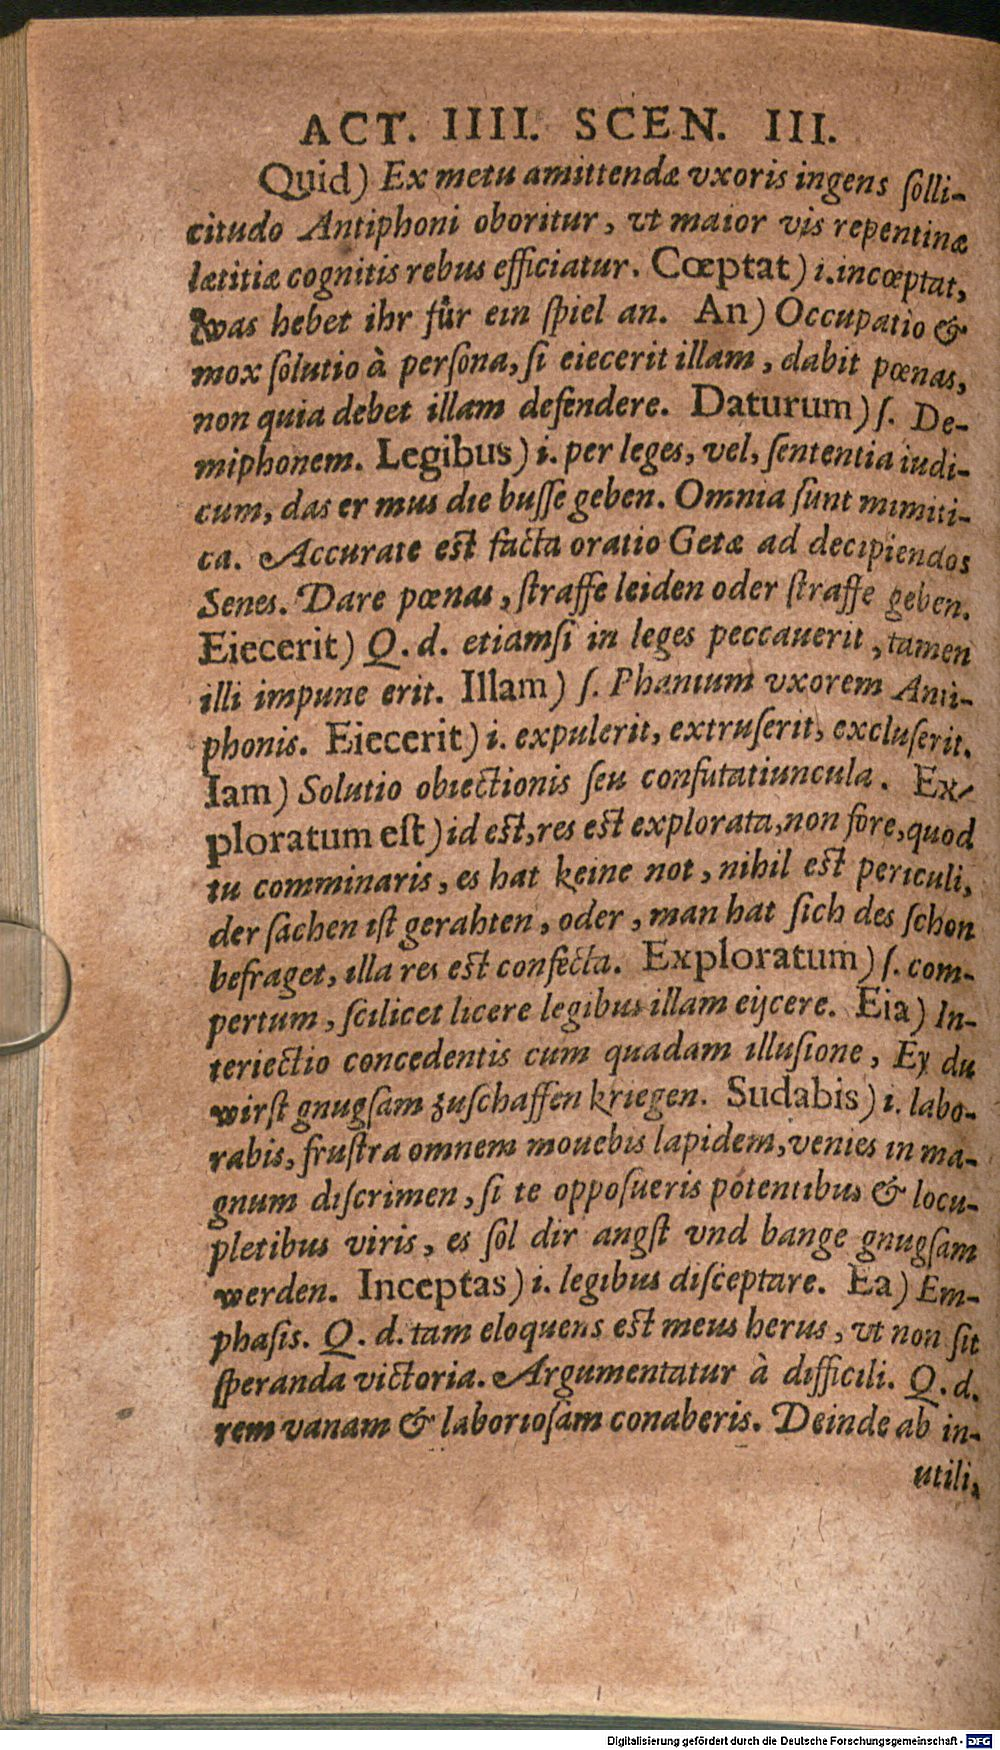 ACT. IIII. SCEN. III.
Quid) Ex metu amittendæ vxoris ingens ſolli-
citudo Antiphoni oboritur, vt maior vis repentinæ
lætitiæ cognitis rebus efficiatur. Cœptat) i.incœptat,
was hebet ihr fůr ein ſpiel an. An) Occupatio &
mox ſolutio à perſona, ſi eiecerit illam, dabit pœnas,
non quia debet illam defendere. Daturum) ſ. De-
miphonem. Legibus) i. per leges, vel, ſententia iudi-
cum, das er mus die buſſe geben. Omnia ſunt mimiti-
ca. Accurate est facta oratio Getæ ad decipiendos
Senes. Dare pœnas, ſtraffe leiden oder ſtraffe geben.
Eiecerit) Q. d. etiamſi in leges peccauerit, tamen
illi impune erit. Illam) ſ. Phanium vxorem Anti-
phonis. Eiecerit) i. expulerit, extruſerit, excluſerit.
Iam) Solutio obiectionis ſeu confutatiuncula. Ex-
ploratum eſt) id est, res est explorata, non fore, quod
tu comminaris, es hat keine not, nihil est periculi,
der ſachen iſt gerahten, oder, man hat ſich des ſchon
befraget, illa res est confecta. Exploratum) ſ. com-
pertum, ſcilicet licere legibus illam eijcere. Eia) In-
teriectio concedentis cum quadam illuſione, Ey du
wirſt gnugſam zuſchaffen kriegen. Sudabis) i. labo-
rabis, fruſtra omnem mouebis lapidem, venies in ma-
gnum diſcrimen, ſi te oppoſueris potentibus & locu-
pletibus viris, es ſol dir angſt vnd bange gnugſam
werden. Inceptas) i. legibus diſceptare. Ea) Em-
phaſis. Q. d. tam eloquens est meus herus, vt non ſit
ſperanda victoria. Argumentatur à difficili. Q. d.
rem vanam & laborioſam conaberis. Deinde ab in-
utili,
Digitalisierung gefördert durch die Deutsche Forschungsgemeinschaft - DFG